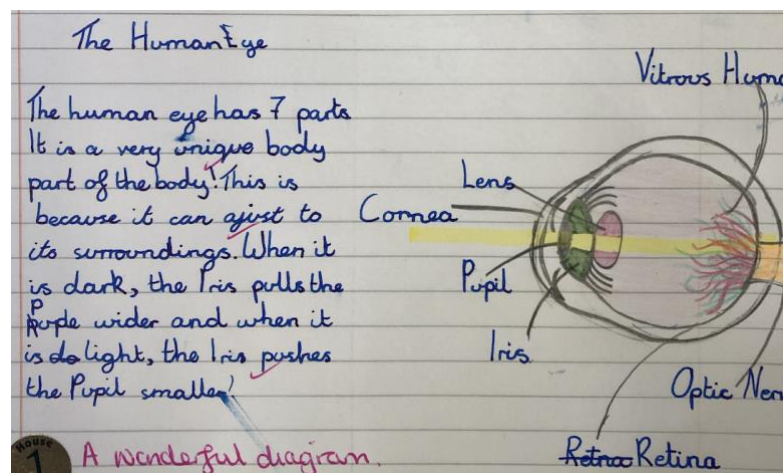 The Human Eye
The human eye has 7 parts
It is a very unique body
part of the body! This is
because it can ajust to
its surroundings. When it
is dark, the Iris pulls the
Puple wider and when it
is do light, the Iris pushes
the Pupil smaller!
Vitrous Huma
Lens
Cornea
Pupil
Iris
Optic Ner
Retna Retina
House
1
A wonderful diagram.